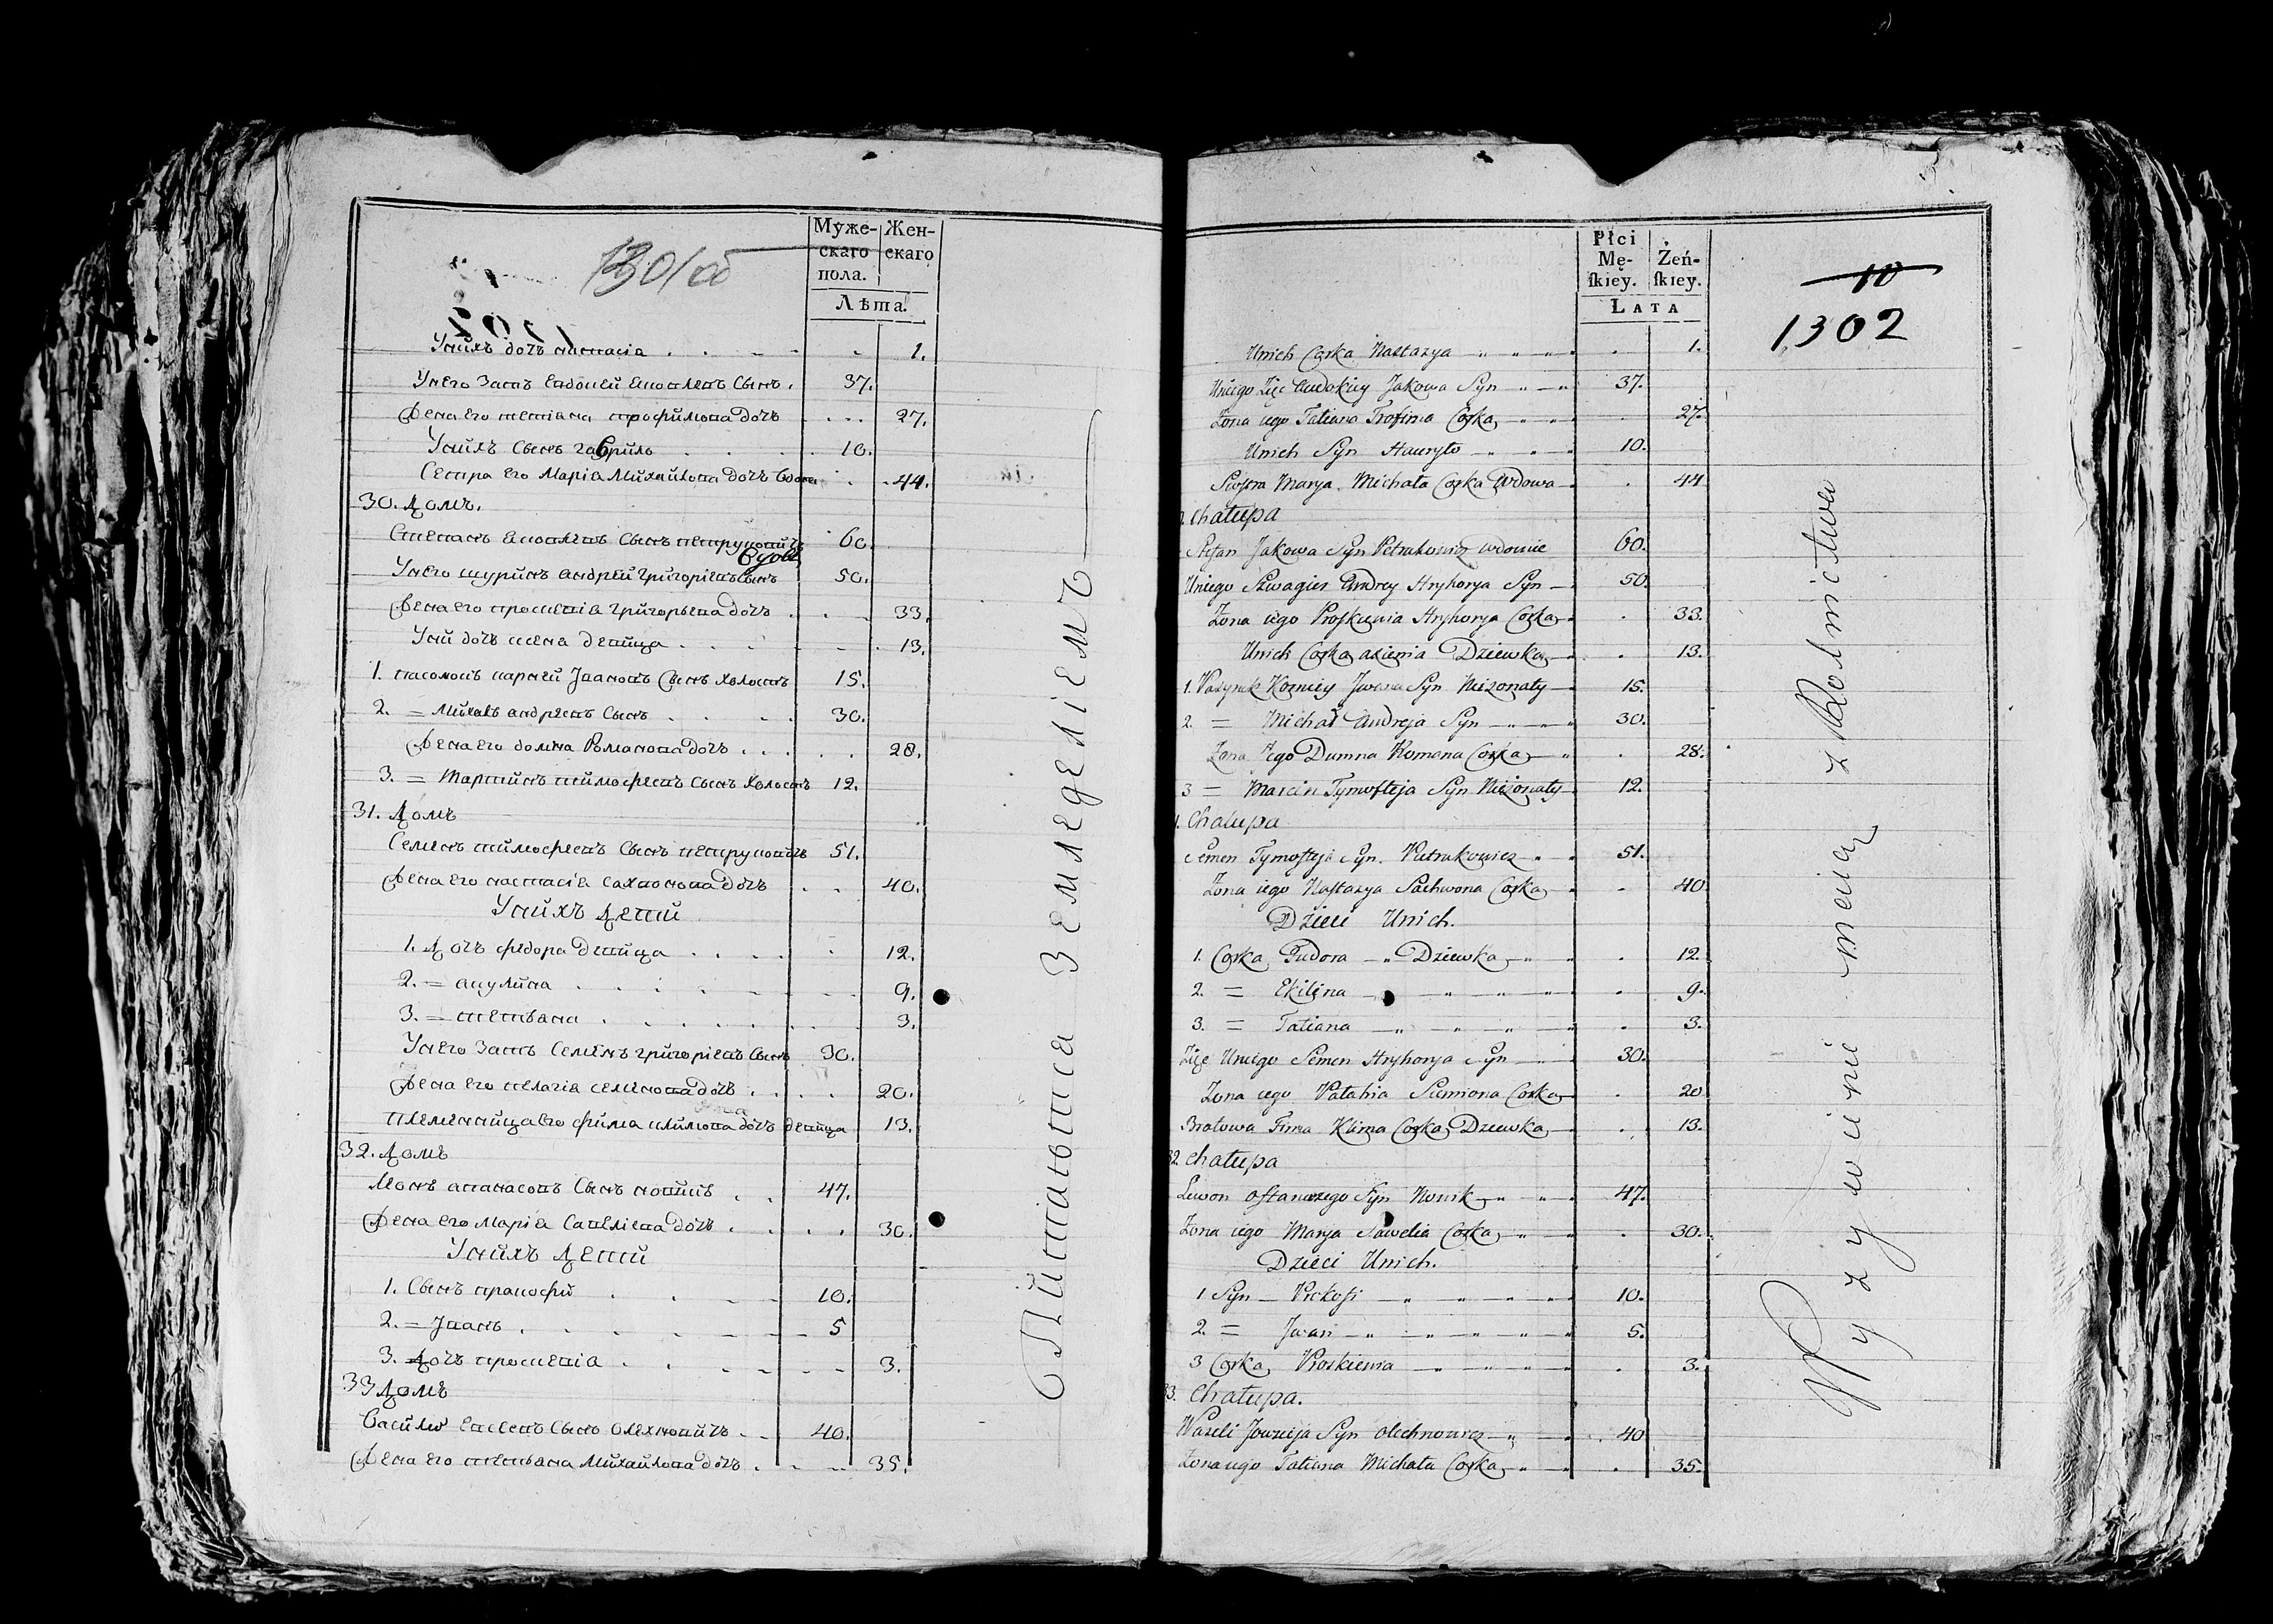 1301 об
Муже-
скаго
пола.
Жен-
скаго
Лѣта.
Унихъ дочъ настасіа 1.
Унего Зать евдокей Яковлевъ Сынъ 37.
Жена его татіана трофимова дочъ 27.
Унихъ Сынъ гаврило 10.
Сестра его Маріа Михайлова дочъ вдова 44.
30. Домъ.
Степанъ Яковлевъ Сынъ петруковичъ 60.
вдовъ
Унего шуринъ андрей григоріевъ Сынъ 50.
Жена его проскевіа григорьева дочъ 33.
Уни дочъ девица 13.
1. Ивановъ Сынъ холостъ 15.
2. = Михаль андреевъ Сынъ 30.
Жена его домна Романова дочъ 28.
3. = Мартинъ тимофеевъ Сынъ Холостъ 12.
31. Домъ
Семенъ тимофеевъ Сынъ петруковичъ 51.
Жена его настасіа сахвонова дочъ 40.
Унихъ Дети
1. Дочъ федора девица 12.
2. = акулина 9.
3. = татьана 3.
Унего Зать Семенъ григоріевъ Сынъ 30.
Жена его пелагіа семенова дочъ 20.
племенница его фима климова дочъ девица 13.
32. Домъ
Леонъ апанасовъ Сынъ новикъ 47.
Жена его Маріа Савеліева дочъ 30.
Унихъ Дети
1. Сынъ пракофи 10.
2. = Іванъ 5
3. Дочъ проскевіа 3.
33 Домъ
Василь евсеевъ Сынъ Олехновичъ 40.
Жена его татьана Михайлова дочъ 35.
Питаютса Земледеліемъ
Płci
Mę-
skiey.
Żeń-
skiey.
LATA
10
1302
Unich Corka Nastazya 1.
Uniego Zięc Audokiey Jakowa Syn 37.
Zona iego Tatiana Trofima Corka 27.
Unich Syn Hauryło 10.
Siostra Marya Michała Corka Wdowa 44
Chałupa
Stefan Jakowa Syn Petrukowicz wdowiec 60.
Uniego Szwagier Andrey Hryhorya Syn 50.
Zona iego Proskiewia Hryhorya Corka 33.
Unich Corka Dziewka 13.
1. Jwana Syn Niezonaty 15.
2. = Michał Andreja Syn 30.
Zona Jego Dumna Romana Corka 28.
3 = Marcin Tymofteja Syn Niezonaty 12.
Chałupa
Semen Tymofteja Syn Petrukowicz 51.
Zona iego Nastazya Sachwona Corka 40
Dzieci Unich.
1. Corka Fudora Dziewka 12.
2. = Ekilina 9.
3. = Tatiana 3.
Zięc Uniego Semen Hryhorya Syn 30.
Zona iego Pałahia Siemiona Corka 20
Bratowa Fima Klima Corka Dziewka 13.
32. Chałupa
Lewon Syn Nowik 47.
Zona iego Marya Sawelia Corka 30.
Dzieci Unich.
1 Syn Prokofi 10.
2. = Jwan 5.
3 Corka Proskiewia 3.
33. Chałupa.
Wasili Jowsieja Syn Olechnowicz 40
Zona iego Tatiana Michała Corka 35.
Wyzywienie maią z Rolnictwa